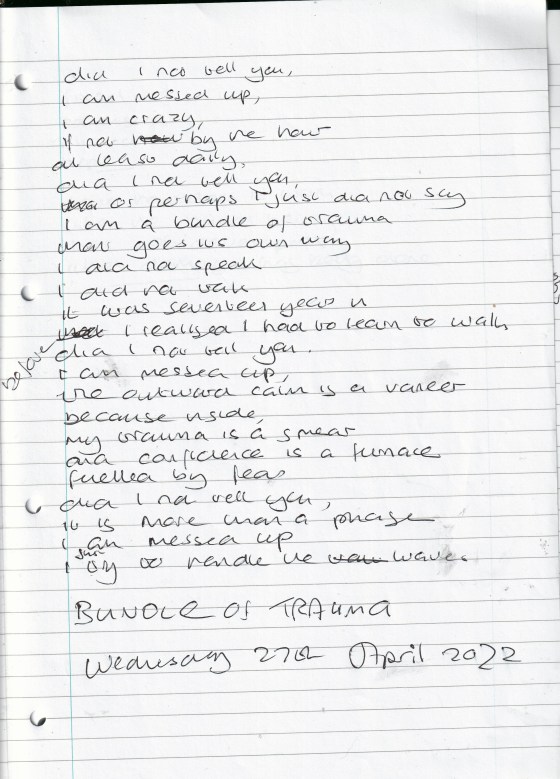 did I not tell you,
I am messed up,
I am crazy,
If not by the hour
at least daily,
did I not tell you,
or perhaps I just did not say
I am a bundle of trauma
that goes its own way
I did not speak
I did not talk
it was seventeen years in
before I realised I had to learn to walk
did I not tell you.
I am messed up,
the outward calm is a vaneer
because inside,
my trauma is a smear
and confidence is a furnace
fuelled by fear
did I not tell you,
it is more than a phase
I am messed up
I just try to handle the waves
BUNDLE OF TRAUMA
Wednesday 27th April 2022